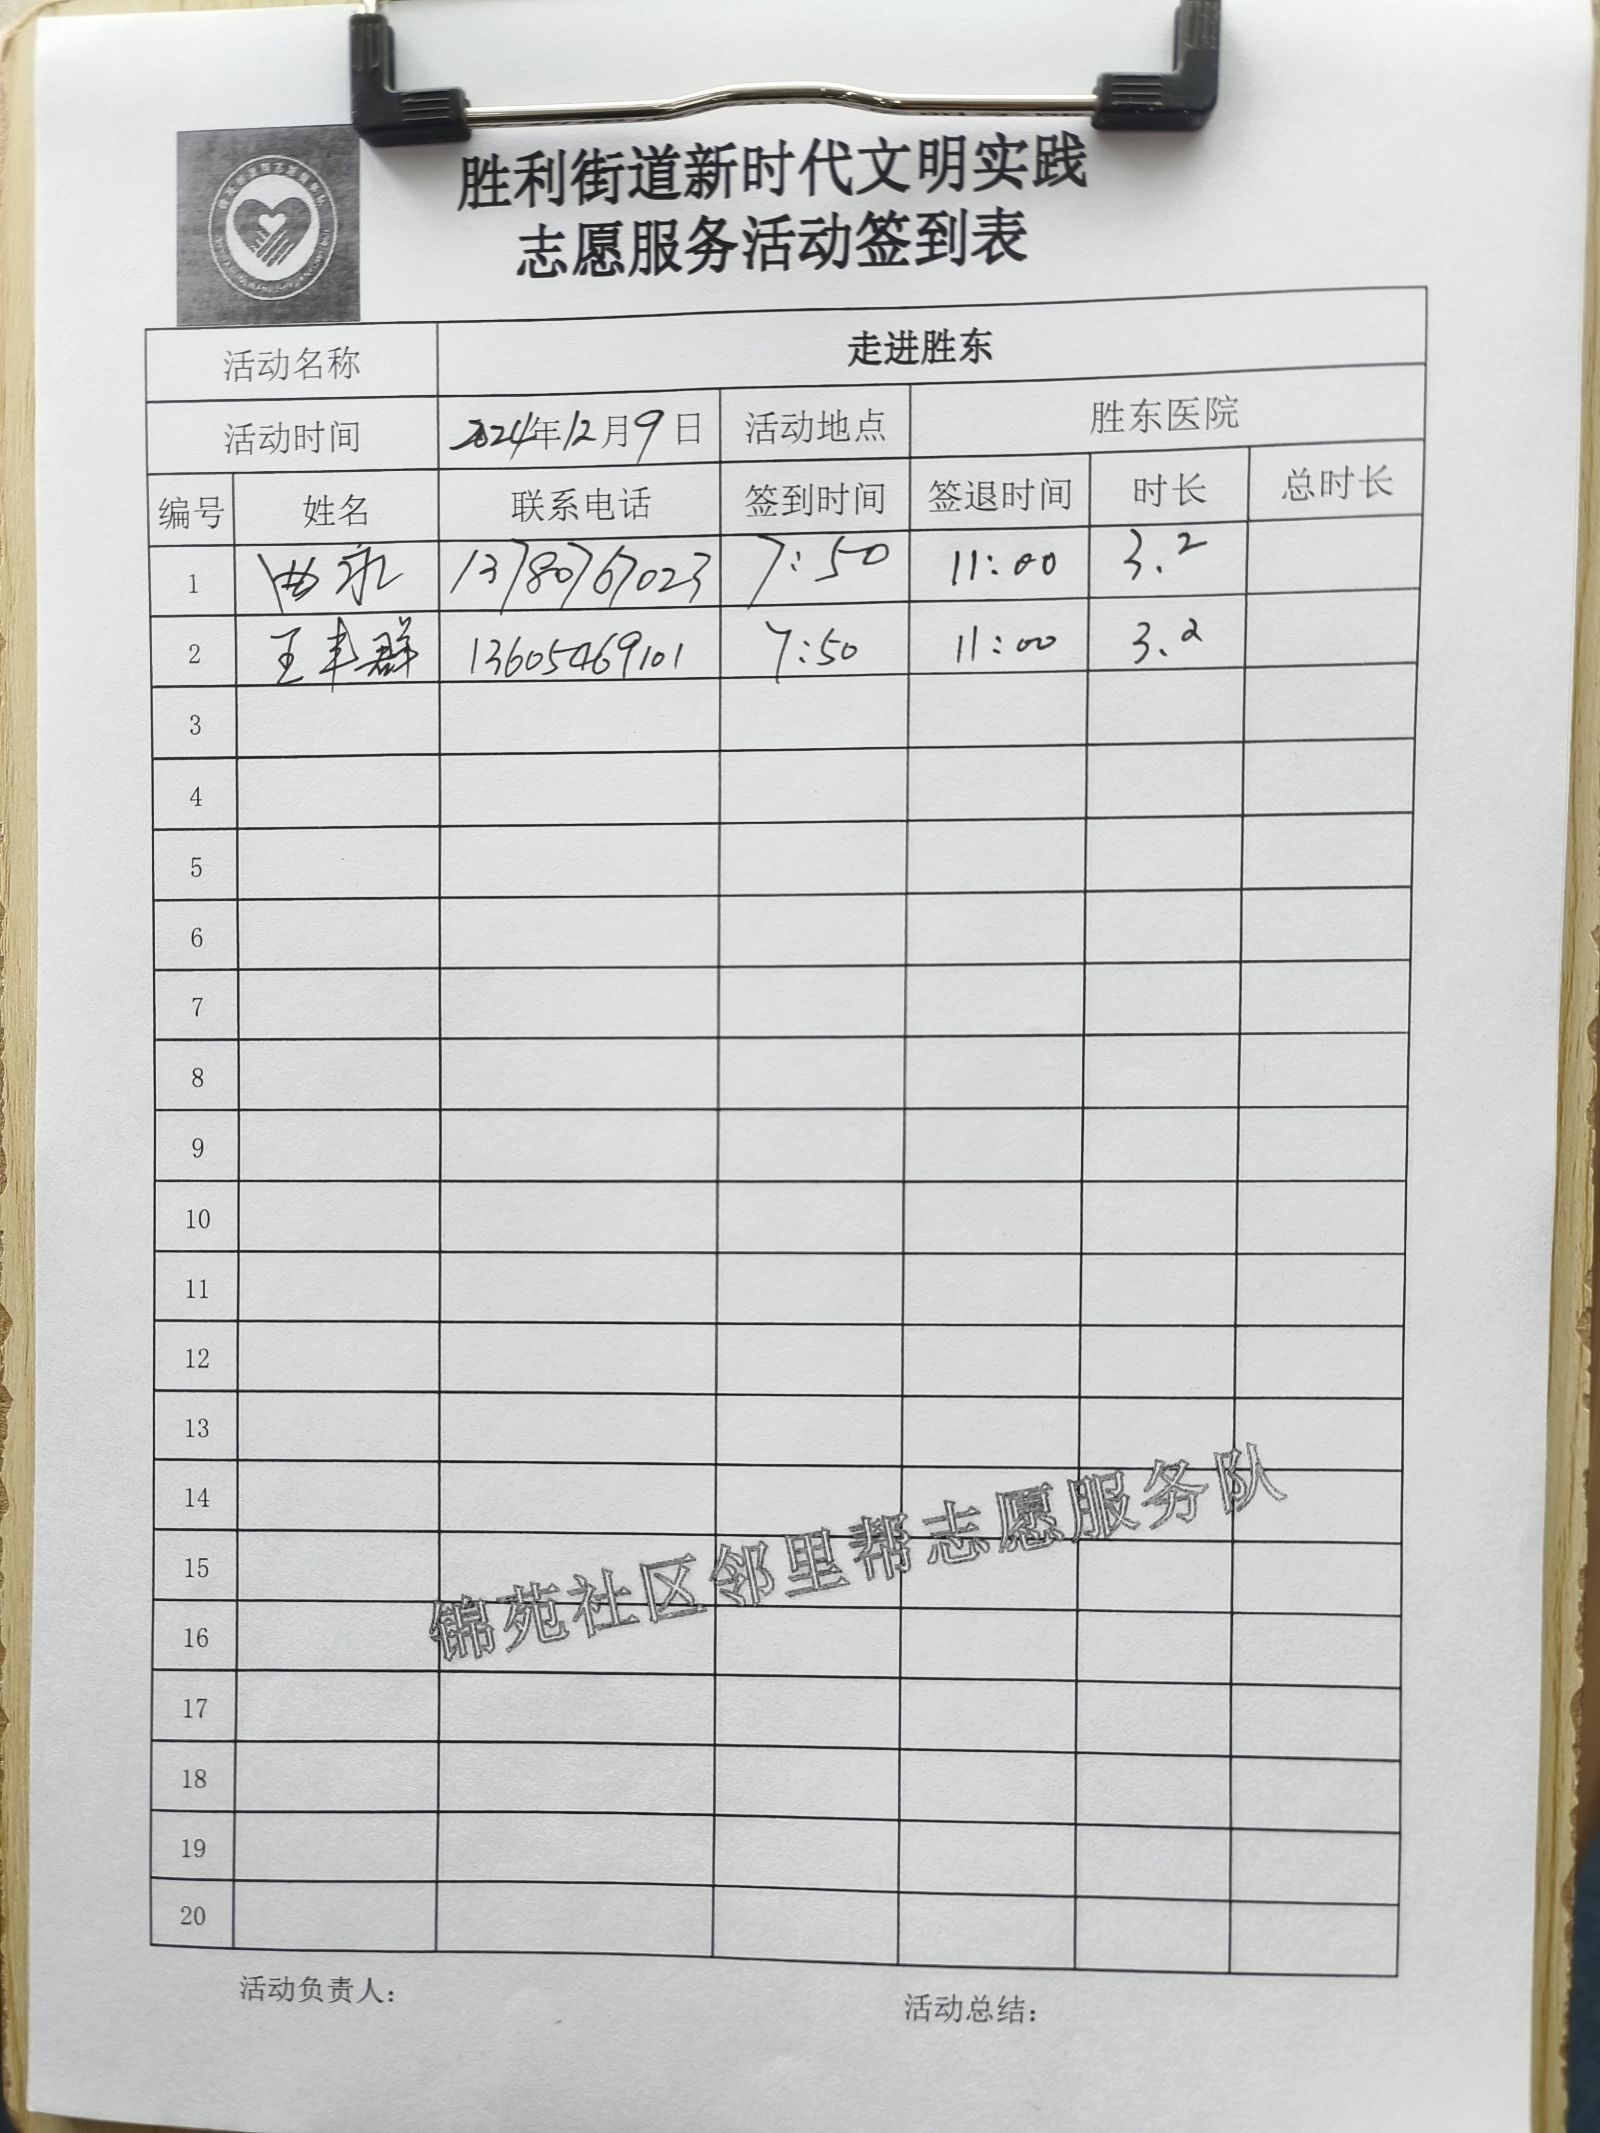 胜利街道新时代文明实践
志愿服务活动签到表
活动名称 走进胜东
活动时间 2024年12月9日 活动地点 胜东医院
编号 姓名 联系电话 签到时间 签退时间 时长 总时长
1 曲永 13780767023 7:50 11:00 3.2
2 王丰群 13605469101 7:50 11:00 3.2
3
4
5
6
7
8
9
10
11
12
13
14
15
16
17
18
19
20
锦苑社区邻里帮志愿服务队
活动负责人：
活动总结：